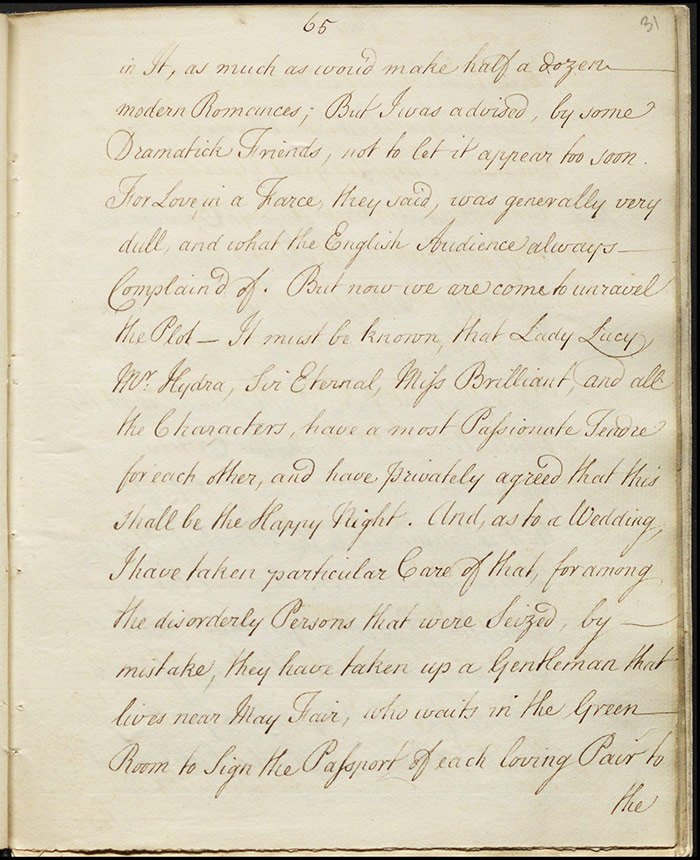 65
31
in It, as much as would make half a dozen
modern Romances; But I was advised, by some
Dramatick Friends, not to let it appear too soon.
For Love, in a Farce, they said, was generally very
dull, and what the English Audience always —
Complain'd of. But now we are come to unravel
the Plot — It must be known, that Lady Lucy,
Mr. Hydra, Sir Eternal, Miss Brilliant, and all
the Characters, have a most Passionate Tendre
for each other, and have privately agreed that this
shall be the Happy Night. And, as to a Wedding,
I have taken particular Care of that, for among
the disorderly Persons that were Seized, by —
mistake, they have taken up a Gentleman that
lives near May Fair, who waits in the Green
Room to Sign the Passport of each loving Pair to
the